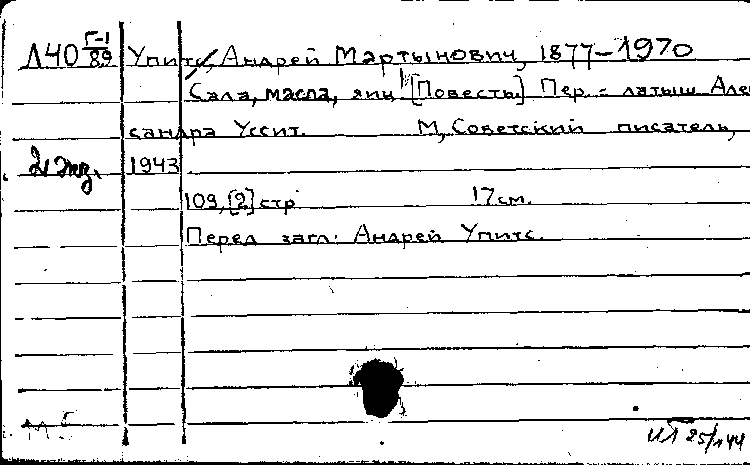 Л40 Г-1/89 Упитс, Андрей Мартынович, 1877-1970
Сала, масла, яиц! [Повесть.] Пер. с латыш Алек
сандра Уссит. М, Советский писатель,
2 экз. 1943.
109, [2] стр 17 см.
Перед загл: Андрей Упитс.
М. Г
25/144